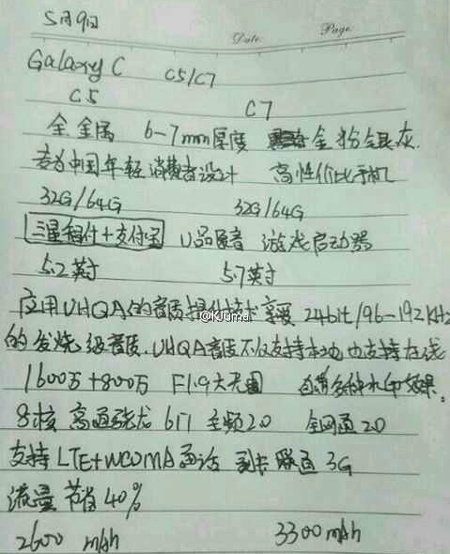 5月9日
Date: Page:
Galaxy C C5/C7
C5 C7
全金属 6-7mm厚度 金粉银灰
专为中国年轻消费者设计 高性价比手机
32G/64G 32G/64G
三星智付+支付宝 U品质音 游戏启动器
5.2英寸 5.7英寸
应用UHQA的音质提升技术 享受 24bit/96-192KHz
@KJuma
的发烧级音质,UHQA音质不仅支持本地也支持在线
1600万+800万 F1.9大光圈 多种水印效果。
8核 高通骁龙 617 主频2.0 全网通2.0
支持LTE+WCDMA通话 副卡联通3G
流量节省40%
2600 mAh 3300mAh